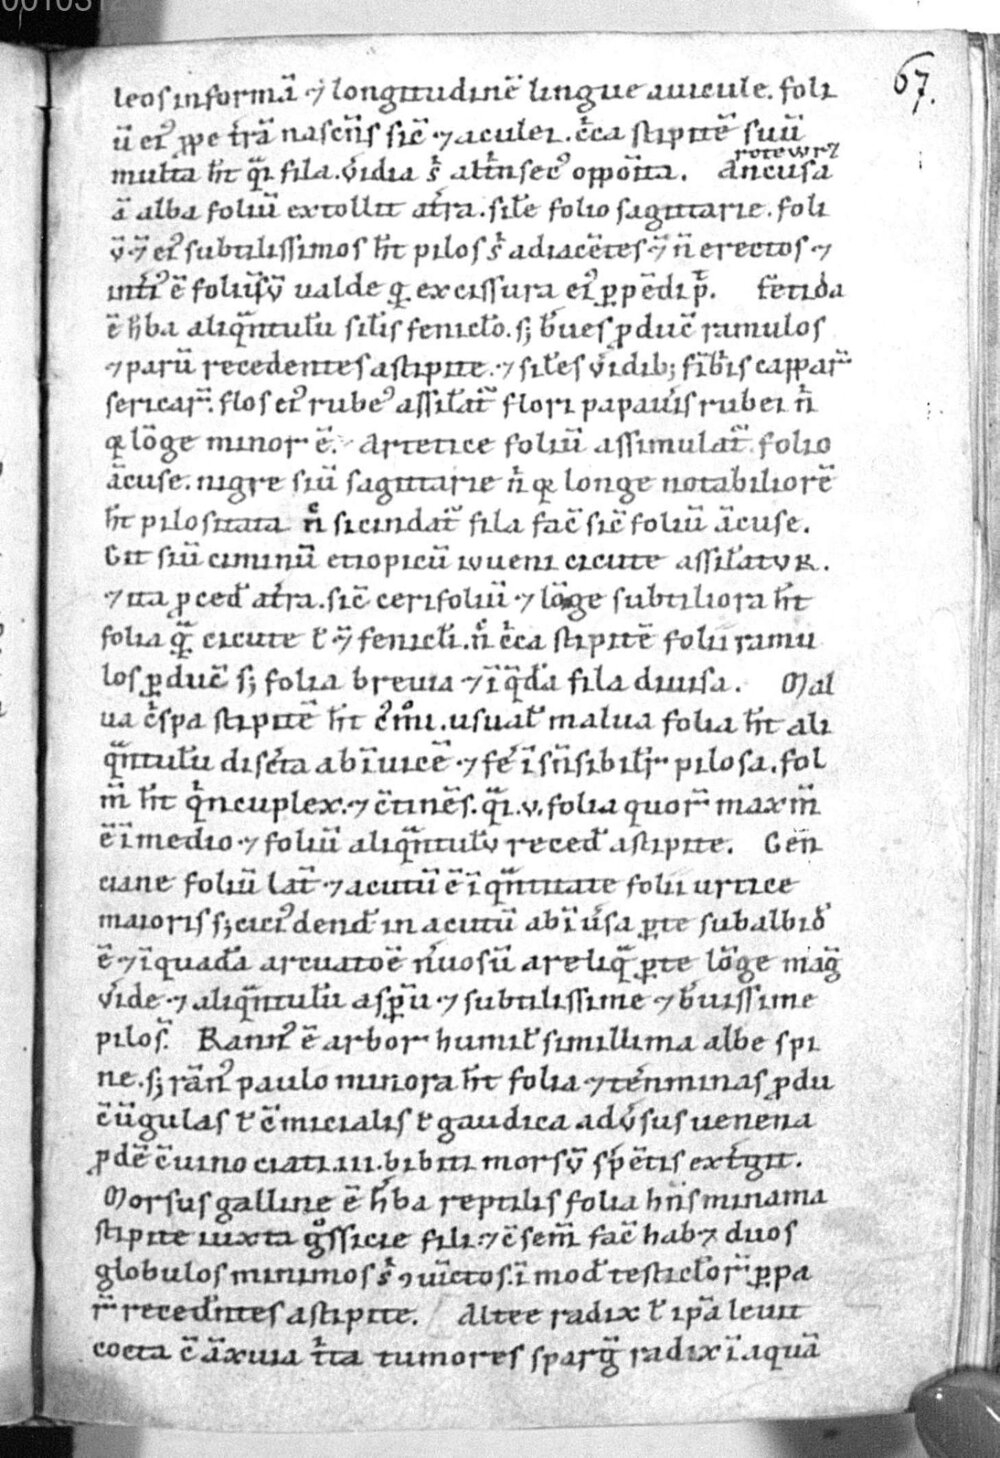 67.
leos in formā ⁊ longitudinē lingue auicule. foli
ū eiꝰ ꝓpe t̄rā nascēs sic̄ ⁊ aculei. c̄ca stipitē suū
multa h̄t q̄i fila. v̄idia s̄ alt̄insecꝰ oppōita. Ancusa
rotewrz
ā alba foliū extollit at̄ra. sil̄e folio sagittarie. foli
v̄ ⁊̄ eiꝰ subtilissimos h̄t pilos s̄ adiacētes ⁊̄ n̄ erectos ⁊
ualde ꝙ ex cissura eiꝰ ꝑpēdi p̄. fētida
ē h̄ba aliq̄ntul̄u sil̄is fenicl̄o. s; b̄ues ꝓduc̄ ramulos
⁊ parū recedentes a stipite. ⁊ sil̄es v̄idib; fīb̄is capparꝝ
sericarꝝ. flos eiꝰ rubeꝰ assil̄at̄ flori papau̅is rubei n̄
ꝙ lōge minor ē. Artetice foliū assimulat̄ folio
ācuse. nigre siū sagittarie n̄ ꝙ longe notabiliorē
h̄t pilositatā n̄ sicindat̄ fila fac̄ sic̄ foliū ācuse.
Git siū ciminū etiopicū iuueni cicute assil̄atur.
⁊ ita ꝓced̄ at̄ra. sic̄ cerifoliū ⁊ lōge subtiliora h̄t
folia q̄ cicute l̄ ⁊̄ fenicl̄i. n̄ c̄ca stipitē folii ramu
los ꝓduc̄ s; folia breuia ⁊ ī q̄d̄a fila diuisa. Mal
ua c̄spa stipitē h̄t usual̄ malua folia h̄t ali
q̄ntul̄u disc̄ta abīuicē ⁊ fē ī sn̄sibil̄r pilosa. fol
m̄ h̄t q̄ncuplex. ⁊ c̄tinēs. q̄i .v. folia quorꝝ maxm̄
ē ī medio ⁊ foliū aliq̄ntul̄u reced̄ a stipite. Gen̄
ciane foliū lat̄ ⁊ acutū ē ī q̄ntitate folii urtice
maioris s; dend̄ in acutū ab ī v̄sa ꝑte subalbid̄
ē ⁊ ī quad̄a arcuatōe n̄uosū a reliq̄ ꝑte lōge mag̅
v̄ide ⁊ aliq̄ntul̄u asꝑū ⁊ subtilissime ⁊ b̄uissime
pilos̄. Rannꝰ ē arbor humil̄ simillima albe spi
ne. s; rān̄ꝰ paulo minora h̄t folia ⁊ ꝓdu
c̄ ūgulas l̄ c̄micialis l̄ gaudica adv̄sus uenena
ꝓdē c̄ uino ciati .iii. bibiti morsū sp̄ētis extīgit.
Morsus galline ē h̄ba reptilis folia hn̄s minama
stipite iuxta g̊ssicie fili ⁊ c̄ sem̄ fac̄ hab⁊ duos
globulos minimos s̄ ꝯuīctos. ī mod̄ testicl̄orꝝ ꝑpa
rꝝ reced̄ntes a stipite. Altee radix l̄ ip̄a leuit
cocta c̄ āxuia t̄ta tumores sparg̅ radix ī aquā